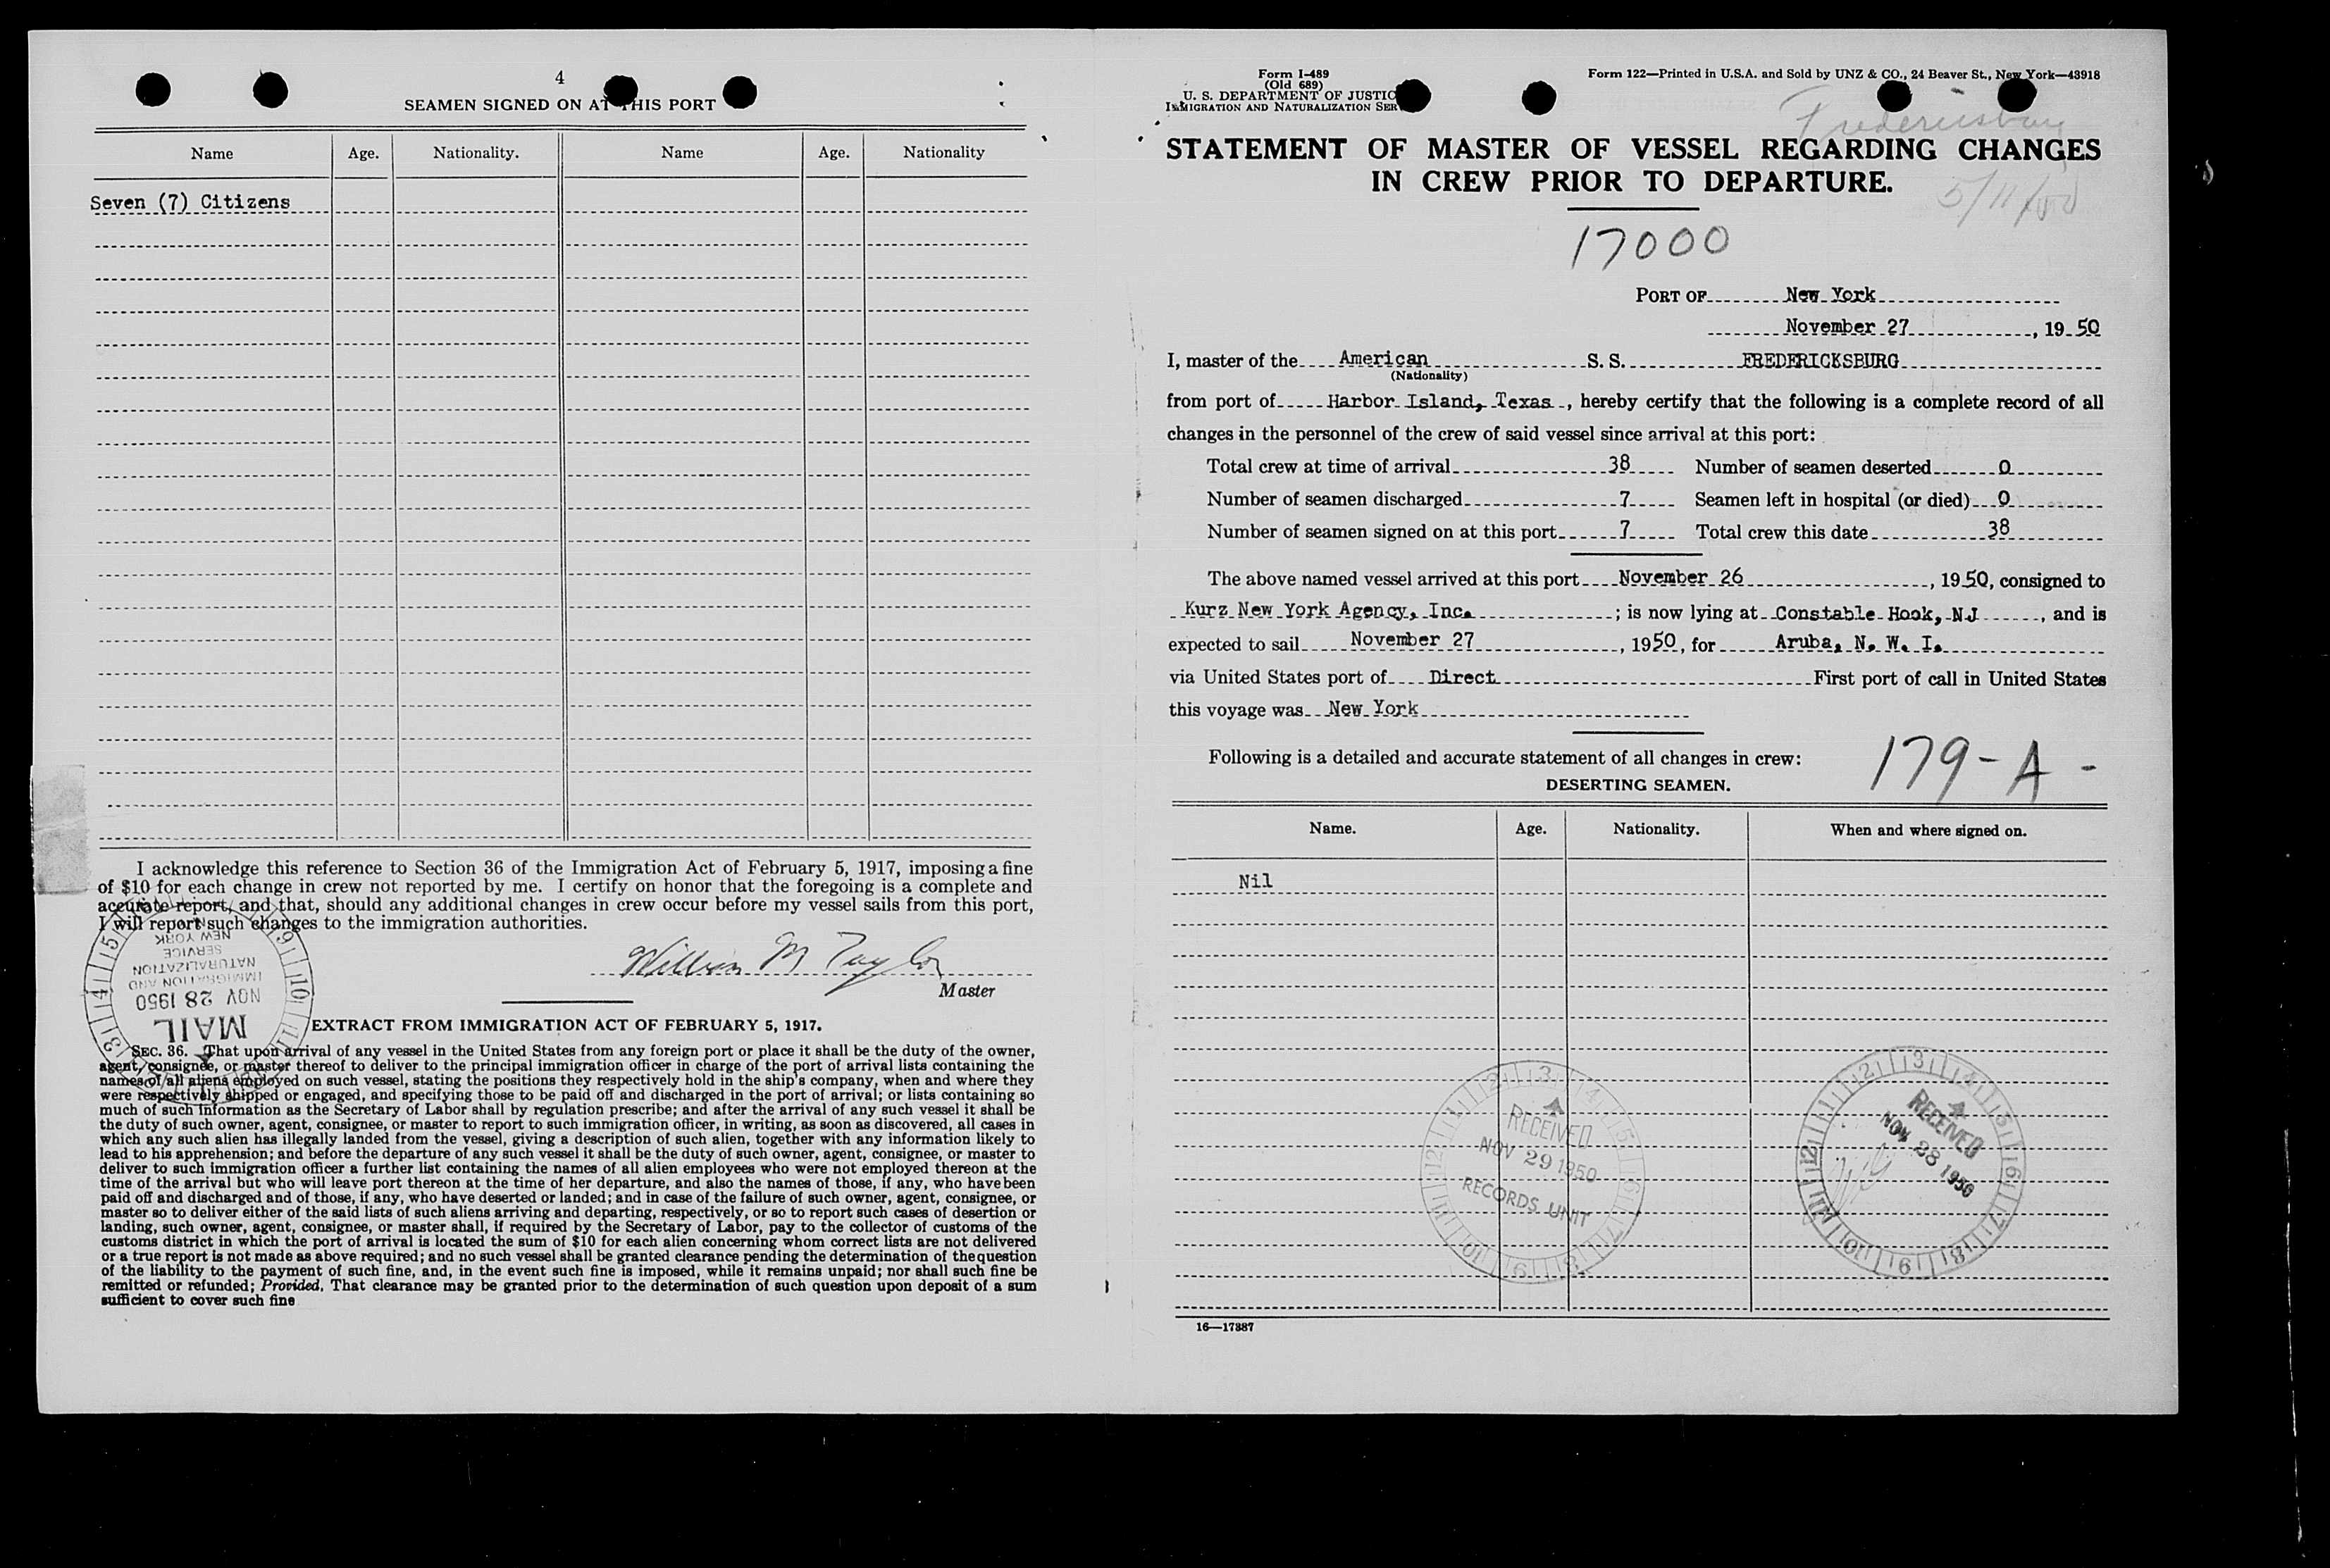 4
SEAMEN SIGNED ON AT THIS PORT
Name Age. Nationality. Name Age. Nationality
Seven (7) Citizens
I acknowledge this reference to Section 36 of the Immigration Act of February 5, 1917, imposing a fine
of $10 for each change in crew not reported by me. I certify on honor that the foregoing is a complete and
accurate report, and that, should any additional changes in crew occur before my vessel sails from this port,
I will report such changes to the immigration authorities.
NEW YORK
SERVICE
NATURALIZATION
IMMIGRATION AND
NOV 28 1950
MAIL
William M Taylor
Master
EXTRACT FROM IMMIGRATION ACT OF FEBRUARY 5, 1917.
SEC. 36. That upon arrival of any vessel in the United States from any foreign port or place it shall be the duty of the owner,
agent, consignee, or master thereof to deliver to the principal immigration officer in charge of the port of arrival lists containing the
names of all aliens employed on such vessel, stating the positions they respectively hold in the ship's company, when and where they
were respectively shipped or engaged, and specifying those to be paid off and discharged in the port of arrival; or lists containing so
much of such information as the Secretary of Labor shall by regulation prescribe; and after the arrival of any such vessel it shall be
the duty of such owner, agent, consignee, or master to report to such immigration officer, in writing, as soon as discovered, all cases in
which any such alien has illegally landed from the vessel, giving a description of such alien, together with any information likely to
lead to his apprehension; and before the departure of any such vessel it shall be the duty of such owner, agent, consignee, or master to
deliver to such immigration officer a further list containing the names of all alien employees who were not employed thereon at the
time of the arrival but who will leave port thereon at the time of her departure, and also the names of those, if any, who have been
paid off and discharged and of those, if any, who have deserted or landed; and in case of the failure of such owner, agent, consignee, or
master so to deliver either of the said lists of such aliens arriving and departing, respectively, or so to report such cases of desertion or
landing, such owner, agent, consignee, or master shall, if required by the Secretary of Labor, pay to the collector of customs of the
customs district in which the port of arrival is located the sum of $10 for each alien concerning whom correct lists are not delivered
or a true report is not made as above required; and no such vessel shall be granted clearance pending the determination of the question
of the liability to the payment of such fine, and, in the event such fine is imposed, while it remains unpaid; nor shall such fine be
remitted or refunded; Provided, That clearance may be granted prior to the determination of such question upon deposit of a sum
sufficient to cover such fine
Form I-489
(Old 689)
U. S. DEPARTMENT OF JUSTIC
IMMIGRATION AND NATURALIZATION SER
Form 122—Printed in U.S.A. and Sold by UNZ & CO., 24 Beaver St., New York—43918
STATEMENT OF MASTER OF VESSEL REGARDING CHANGES
IN CREW PRIOR TO DEPARTURE.
17000
PORT OF New York
November 27, 19 50
I, master of the American S. S. FREDERICKSBURG
(Nationality)
from port of Harbor Island, Texas, hereby certify that the following is a complete record of all
changes in the personnel of the crew of said vessel since arrival at this port:
Total crew at time of arrival 38 Number of seamen deserted 0
Number of seamen discharged 7 Seamen left in hospital (or died) 0
Number of seamen signed on at this port 7 Total crew this date 38
The above named vessel arrived at this port November 26, 1950, consigned to
Kurz New York Agency, Inc. ; is now lying at Constable Hook, NJ, and is
expected to sail November 27, 1950, for Aruba, N. W. I.
via United States port of Direct First port of call in United States
this voyage was New York
Following is a detailed and accurate statement of all changes in crew:
179-A -
DESERTING SEAMEN.
Name. Age. Nationality. When and where signed on.
Nil
RECEIVED
NOV 29 1950
RECORDS UNIT
RECEIVED
NOV 28 1950
16—17887